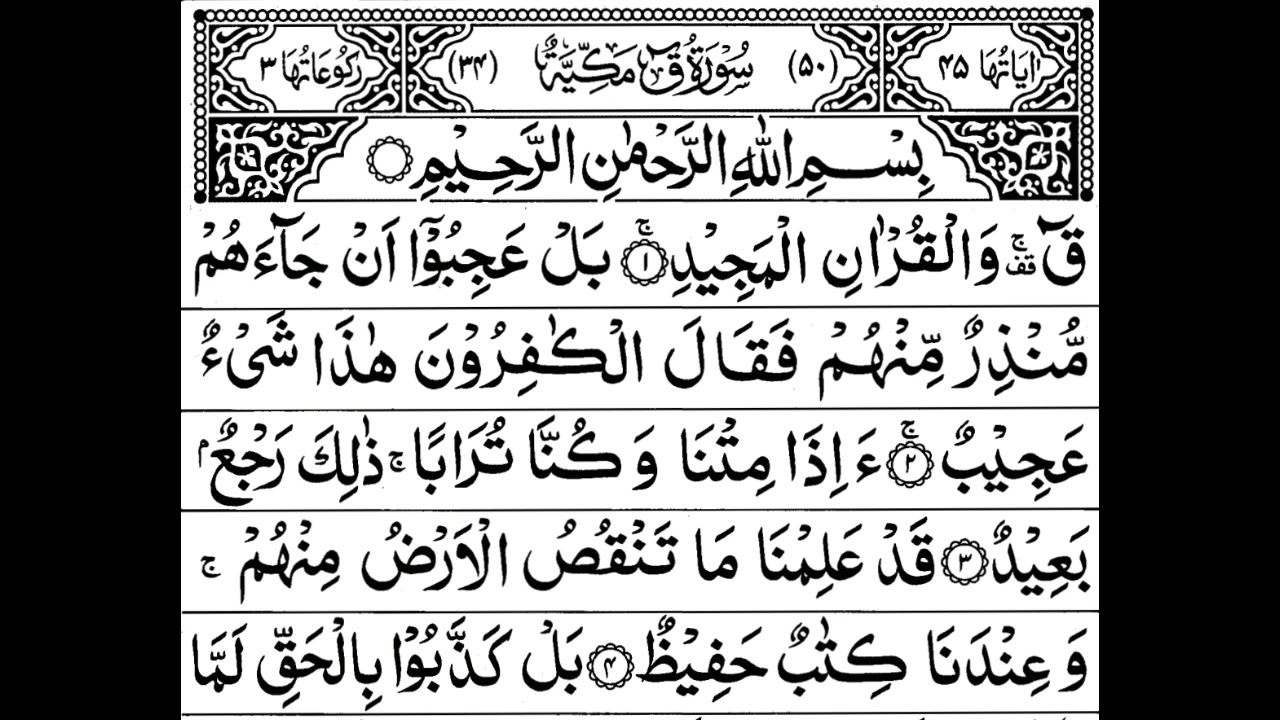 اٰيَاتُهَا ۴۵ (۵۰) سُوْرَةُ قٓ مَكِّيَّةٌ (۳۴) رُكُوْعَاتُهَا ۳
بِسْمِ اللّٰهِ الرَّحْمٰنِ الرَّحِيْمِ
قٓ ۚ قف وَالْقُرْاٰنِ الْمَجِيْدِ ۚ‏﴿۱﴾ بَلْ عَجِبُوْۤا اَنْ جَآءَهُمْ
مُّنْذِرٌ مِّنْهُمْ فَقَالَ الْكٰفِرُوْنَ هٰذَا شَیْءٌ
عَجِيْبٌ ۚ‏﴿۲﴾ ءَاِذَا مِتْنَا وَكُنَّا تُرَابًا ۚ ذٰلِكَ رَجْعٌ ۢ
بَعِيْدٌ ﴿۳﴾ قَدْ عَلِمْنَا مَا تَنْقُصُ الْاَرْضُ مِنْهُمْ ۚ
وَعِنْدَنَا كِتٰبٌ حَفِيْظٌ ﴿۴﴾ بَلْ كَذَّبُوْا بِالْحَقِّ لَمَّا